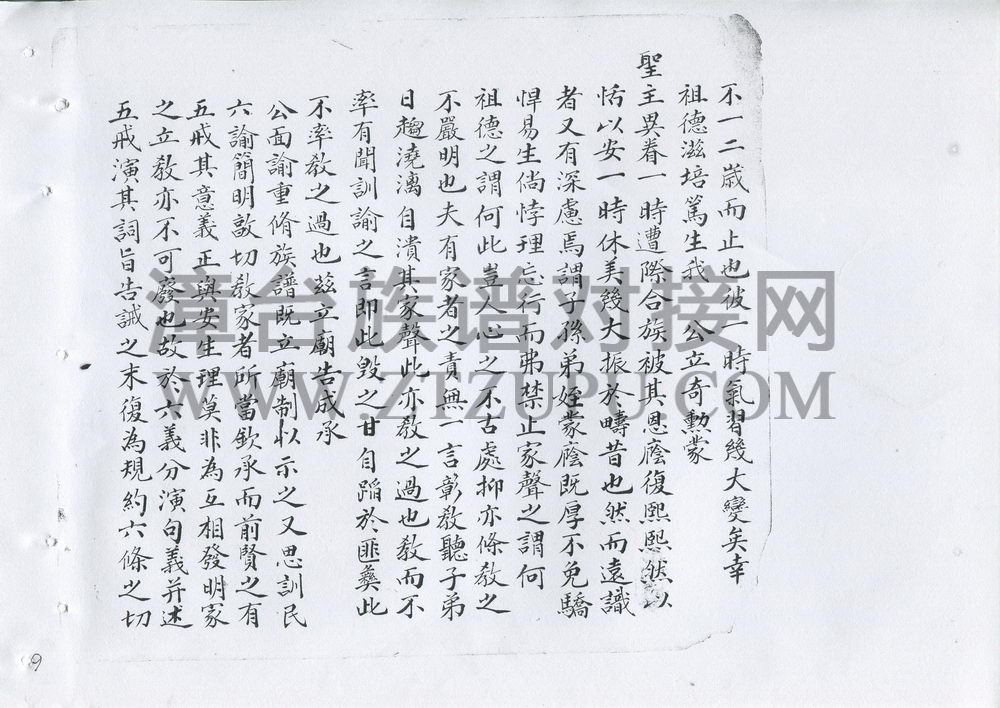 不一二歲而止也彼一時氣習幾大變矣幸
祖德滋培篤生我 公立奇勲蒙
聖主異眷一時遭際合族被其恩廕復熙熙然以
恬以安一時休美幾大振於疇昔也然而遠識
者又有深慮焉謂子孫弟姪蒙廕既厚不免驕
悍易生倘悖理忘行而弗禁止家聲之謂何
祖德之謂何此豈人心之不古處抑亦條教之
不嚴明也夫有家者之責無一言彰教聽子弟
日趨澆漓自潰其家聲此亦教之過也教而不
率有聞訓諭之言即此毀之甘自蹈於匪彝此
不率教之過也茲立廟告成承
公面諭重脩族譜既立廟制以示之又思訓民
六諭簡明敦切教家者所當欽承而前賢之有
五戒其意義正與安生理莫非為互相發明家
之立教亦不可廢也故於六義分演句義并述
五戒演其詞旨告誡之末復為規約六條之切
漳台族谱对接网
WWW.ZTZUPU.COM
9